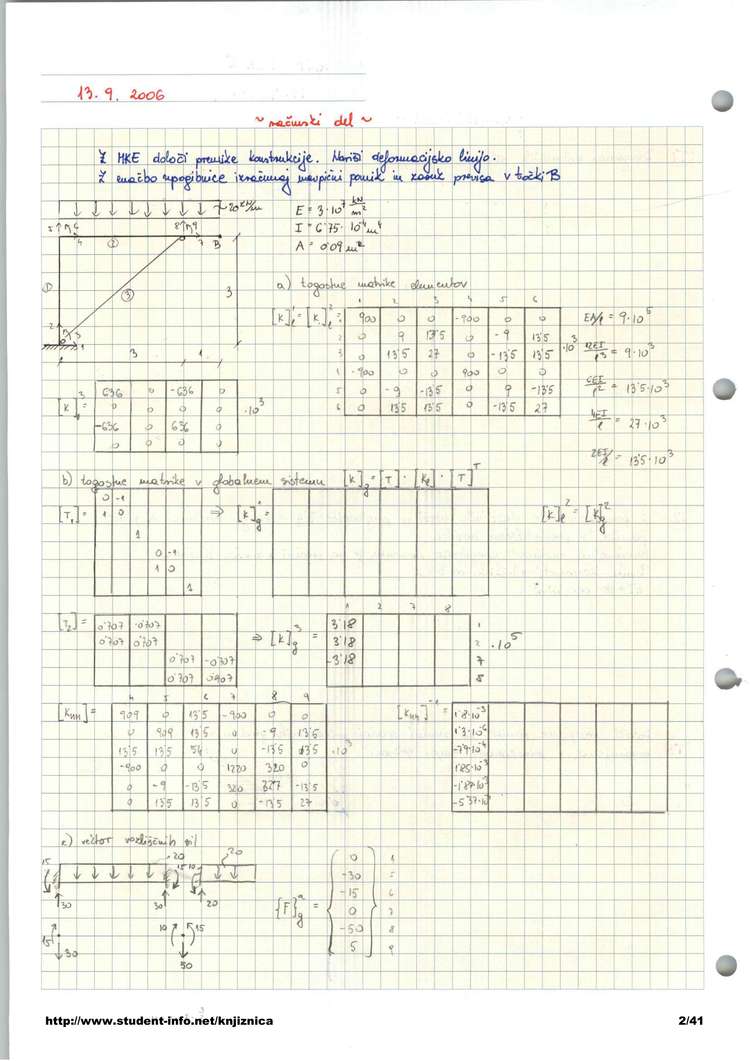 13. 9. 2006
~ računski del ~
Z MKE določi pomike konstrukcije. Nariši deformacijsko linijo.
Z enačbo upogibnice izračunaj navpični pomik in zasuk previsa v točki B
20 kN/m
E = 3·10⁷ kN/m²
I = 6'75·10⁻⁴ m⁴
A = 0'09 m²
5 6 8 9
4 ② 7 B
①
③
3
2 3
1
3 1
a) togostne matrike elementov
1 2 3 4 5 6
[K]¹ℓ = [K]²ℓ =
900 0 0 -900 0 0
2 0 9 13'5 0 -9 13'5
3 0 13'5 27 0 -13'5 13'5 ·10³
4 -900 0 0 900 0 0
5 0 -9 -13'5 0 9 -13'5
6 0 13'5 13'5 0 -13'5 27
EA/ℓ = 9·10⁵
12EI/ℓ³ = 9·10³
6EI/ℓ² = 13'5·10³
4EI/ℓ = 27·10³
2EI/ℓ = 13'5·10³
[K]³ℓ =
636 0 -636 0
0 0 0 0 ·10³
-636 0 636 0
0 0 0 0
b) togostne matrike v globalnem sistemu [K]g = [T]·[Kℓ]·[T]ᵀ
[T₁] =
0 -1
1 0
1
0 -1
1 0
1
⇒ [K]¹g =
[K]²ℓ = [K]²g
[T₂] =
0'707 -0'707
0'707 0'707
0'707 -0'707
0'707 0'707
⇒ [K]³g =
1 2 7 8
3'18 1
3'18 2 ·10⁵
-3'18 7
8
[Kₙₙ] =
4 5 6 7 8 9
909 0 13'5 -900 0 0
0 909 13'5 0 -9 13'5
13'5 13'5 54 0 -13'5 13'5 ·10³
-900 0 0 1220 320 0
0 -9 -13'5 320 327 -13'5
0 13'5 13'5 0 -13'5 27
[Kₙₙ]⁻¹ =
1'8·10⁻³
1'3·10⁻⁶
-7'9·10⁻⁴
1'85·10⁻³
-1'87·10⁻³
c) vektor vozliščnih sil
20 20
15 15 10
30 30 20
15 30
10 15
50
{F}ᵃg =
0
-30
-15 6
0
-50 8
5 9
http://www.student-info.net/knjiznica
2/41